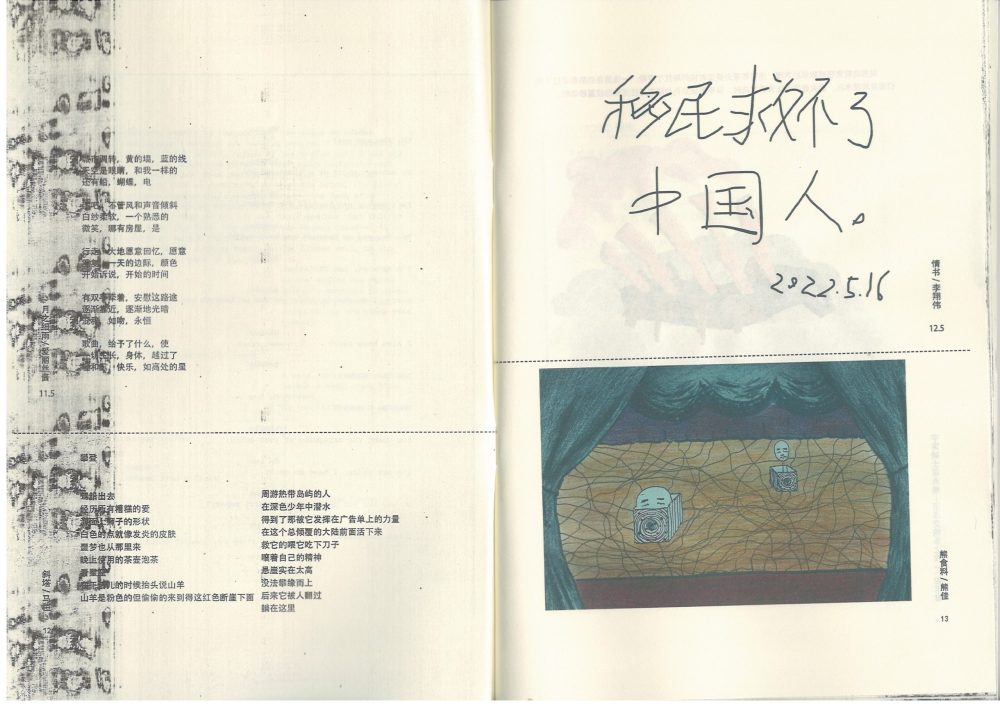 黄的墙，蓝的线
天空是眼睛，和我一样的
还有船，蝴蝶，电
不管风和声音倾斜
白纱柔软，一个熟悉的
微笑，哪有房屋，是
大地愿意回忆，愿意
一天的边际，颜色
开始诉说，开始的时间
有双手牵着，安慰这路途
逐渐靠近，逐渐地光暗
如吻，永恒
歌曲，给予了什么，使
身体，越过了
快乐，如高处的星
11.5
攀登
出去
经历所有糟糕的爱
子的形状
白色的点就像发炎的皮肤
噩梦也从那里来
晚上使用的茶壶泡茶
的时候抬头说山羊
山羊是粉色的但偷偷的来到得这红色断崖下面
周游热带岛屿的人
在深色少年中潜水
得到了那被它发挥在广告单上的力量
在这个总倾覆的大陆前面活下来
救它的喂它吃下刀子
嚷着自己的精神
悬崖实在太高
没法攀缘而上
后来它被人翻过
躺在这里
移民救不了
中国人。
2022.5.16
情书/李翔伟
12.5
熊食料/熊佳
13